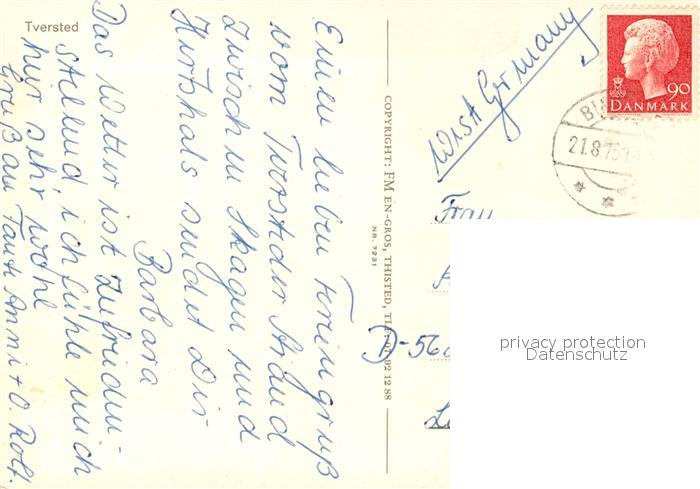 Tversted
Einen lieben Feriengruß
vom Tverstder Strand
zwischen Skagen und
Hirtshals sendet Dir
Barbara
Das Wetter ist zufrieden-
stellend ich fühle mich
hier sehr wohl
Gruß an Tante Anni + O. Rolf.
COPYRIGHT: FM EN-GROS, THISTED, TLF. 07-92 12 88
NR. 7231
West Germany
90
DANMARK
21.8.75
Frau
D-560
privacy protection
Datenschutz